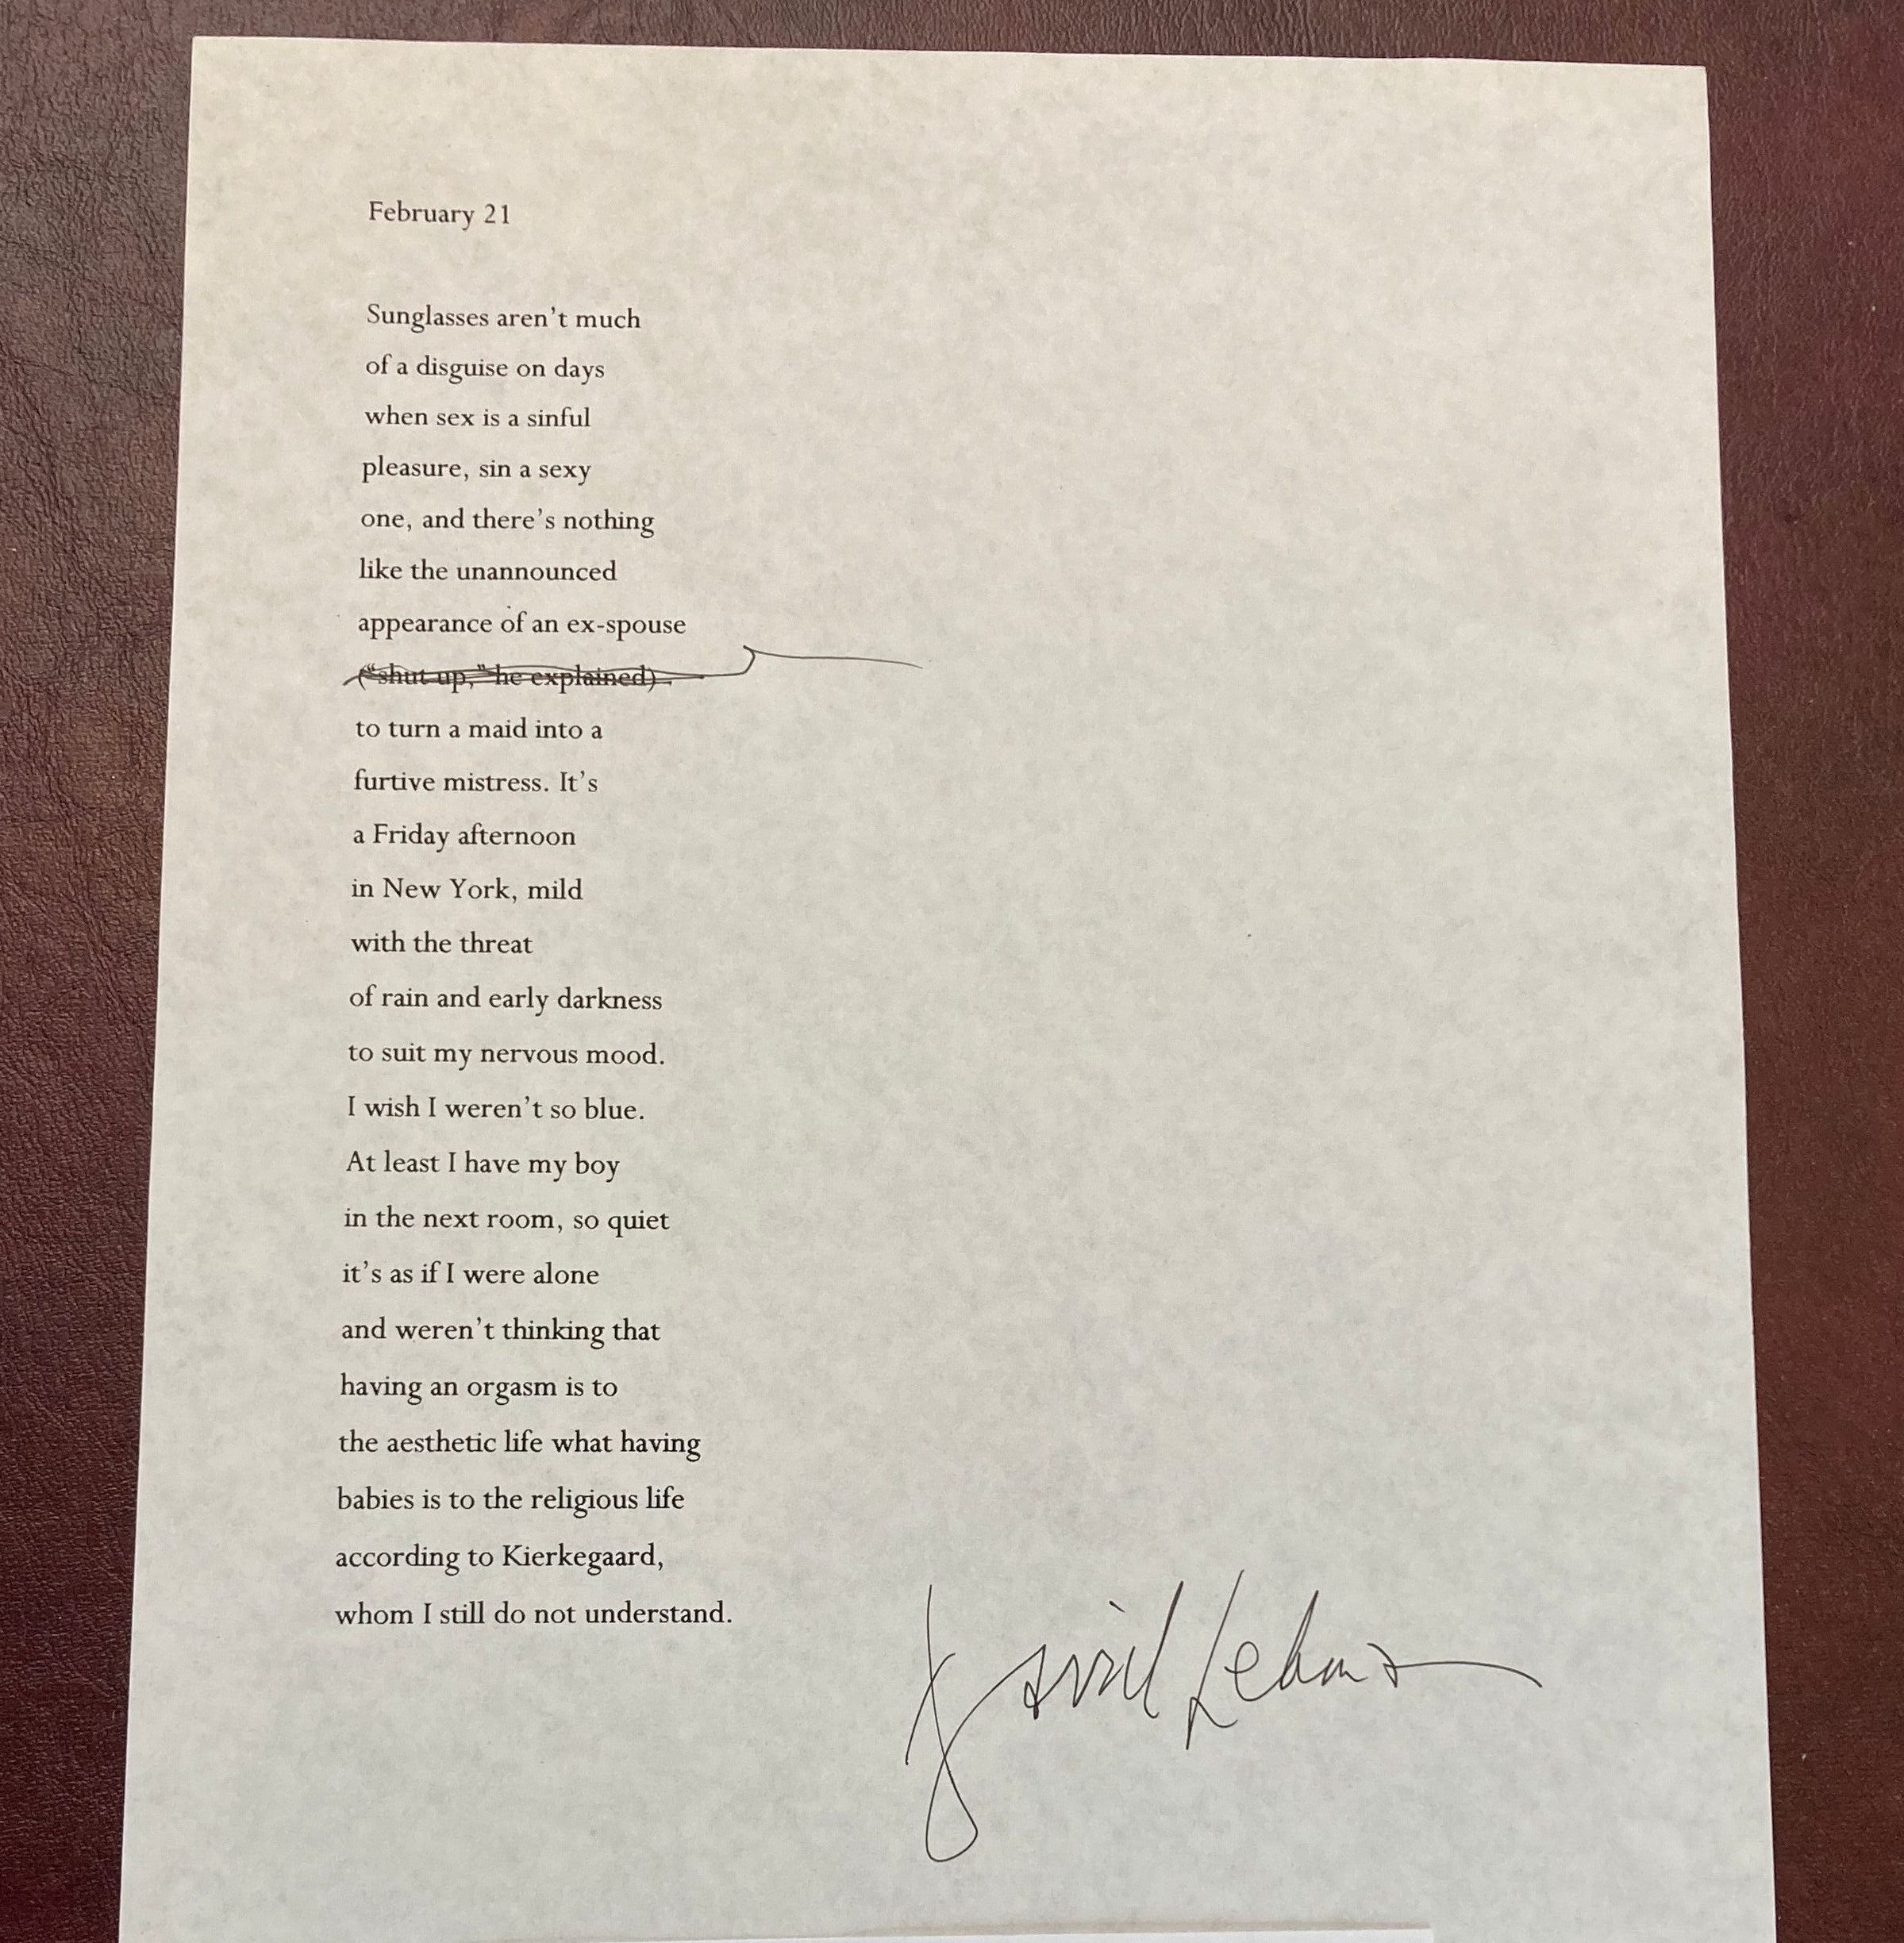 February 21
Sunglasses aren't much
of a disguise on days
when sex is a sinful
pleasure, sin a sexy
one, and there's nothing
like the unannounced
appearance of an ex-spouse
("shut up," he explained)
to turn a maid into a
furtive mistress. It's
a Friday afternoon
in New York, mild
with the threat
of rain and early darkness
to suit my nervous mood.
I wish I weren't so blue.
At least I have my boy
in the next room, so quiet
it's as if I were alone
and weren't thinking that
having an orgasm is to
the aesthetic life what having
babies is to the religious life
according to Kierkegaard,
whom I still do not understand.
David Lehman